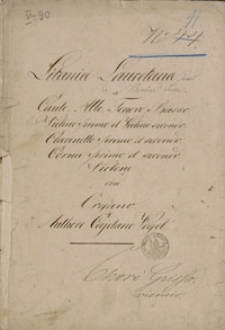 V-90
11
No 44
Litania Lauretana
a
Canto Alto Tenore Basso
Violino Primo et Violino secondo
Clarinetto Primo et secondo
Cornu Primo et secondo
Violone
con
Organo
Authore Cajetano Vogel
Chori